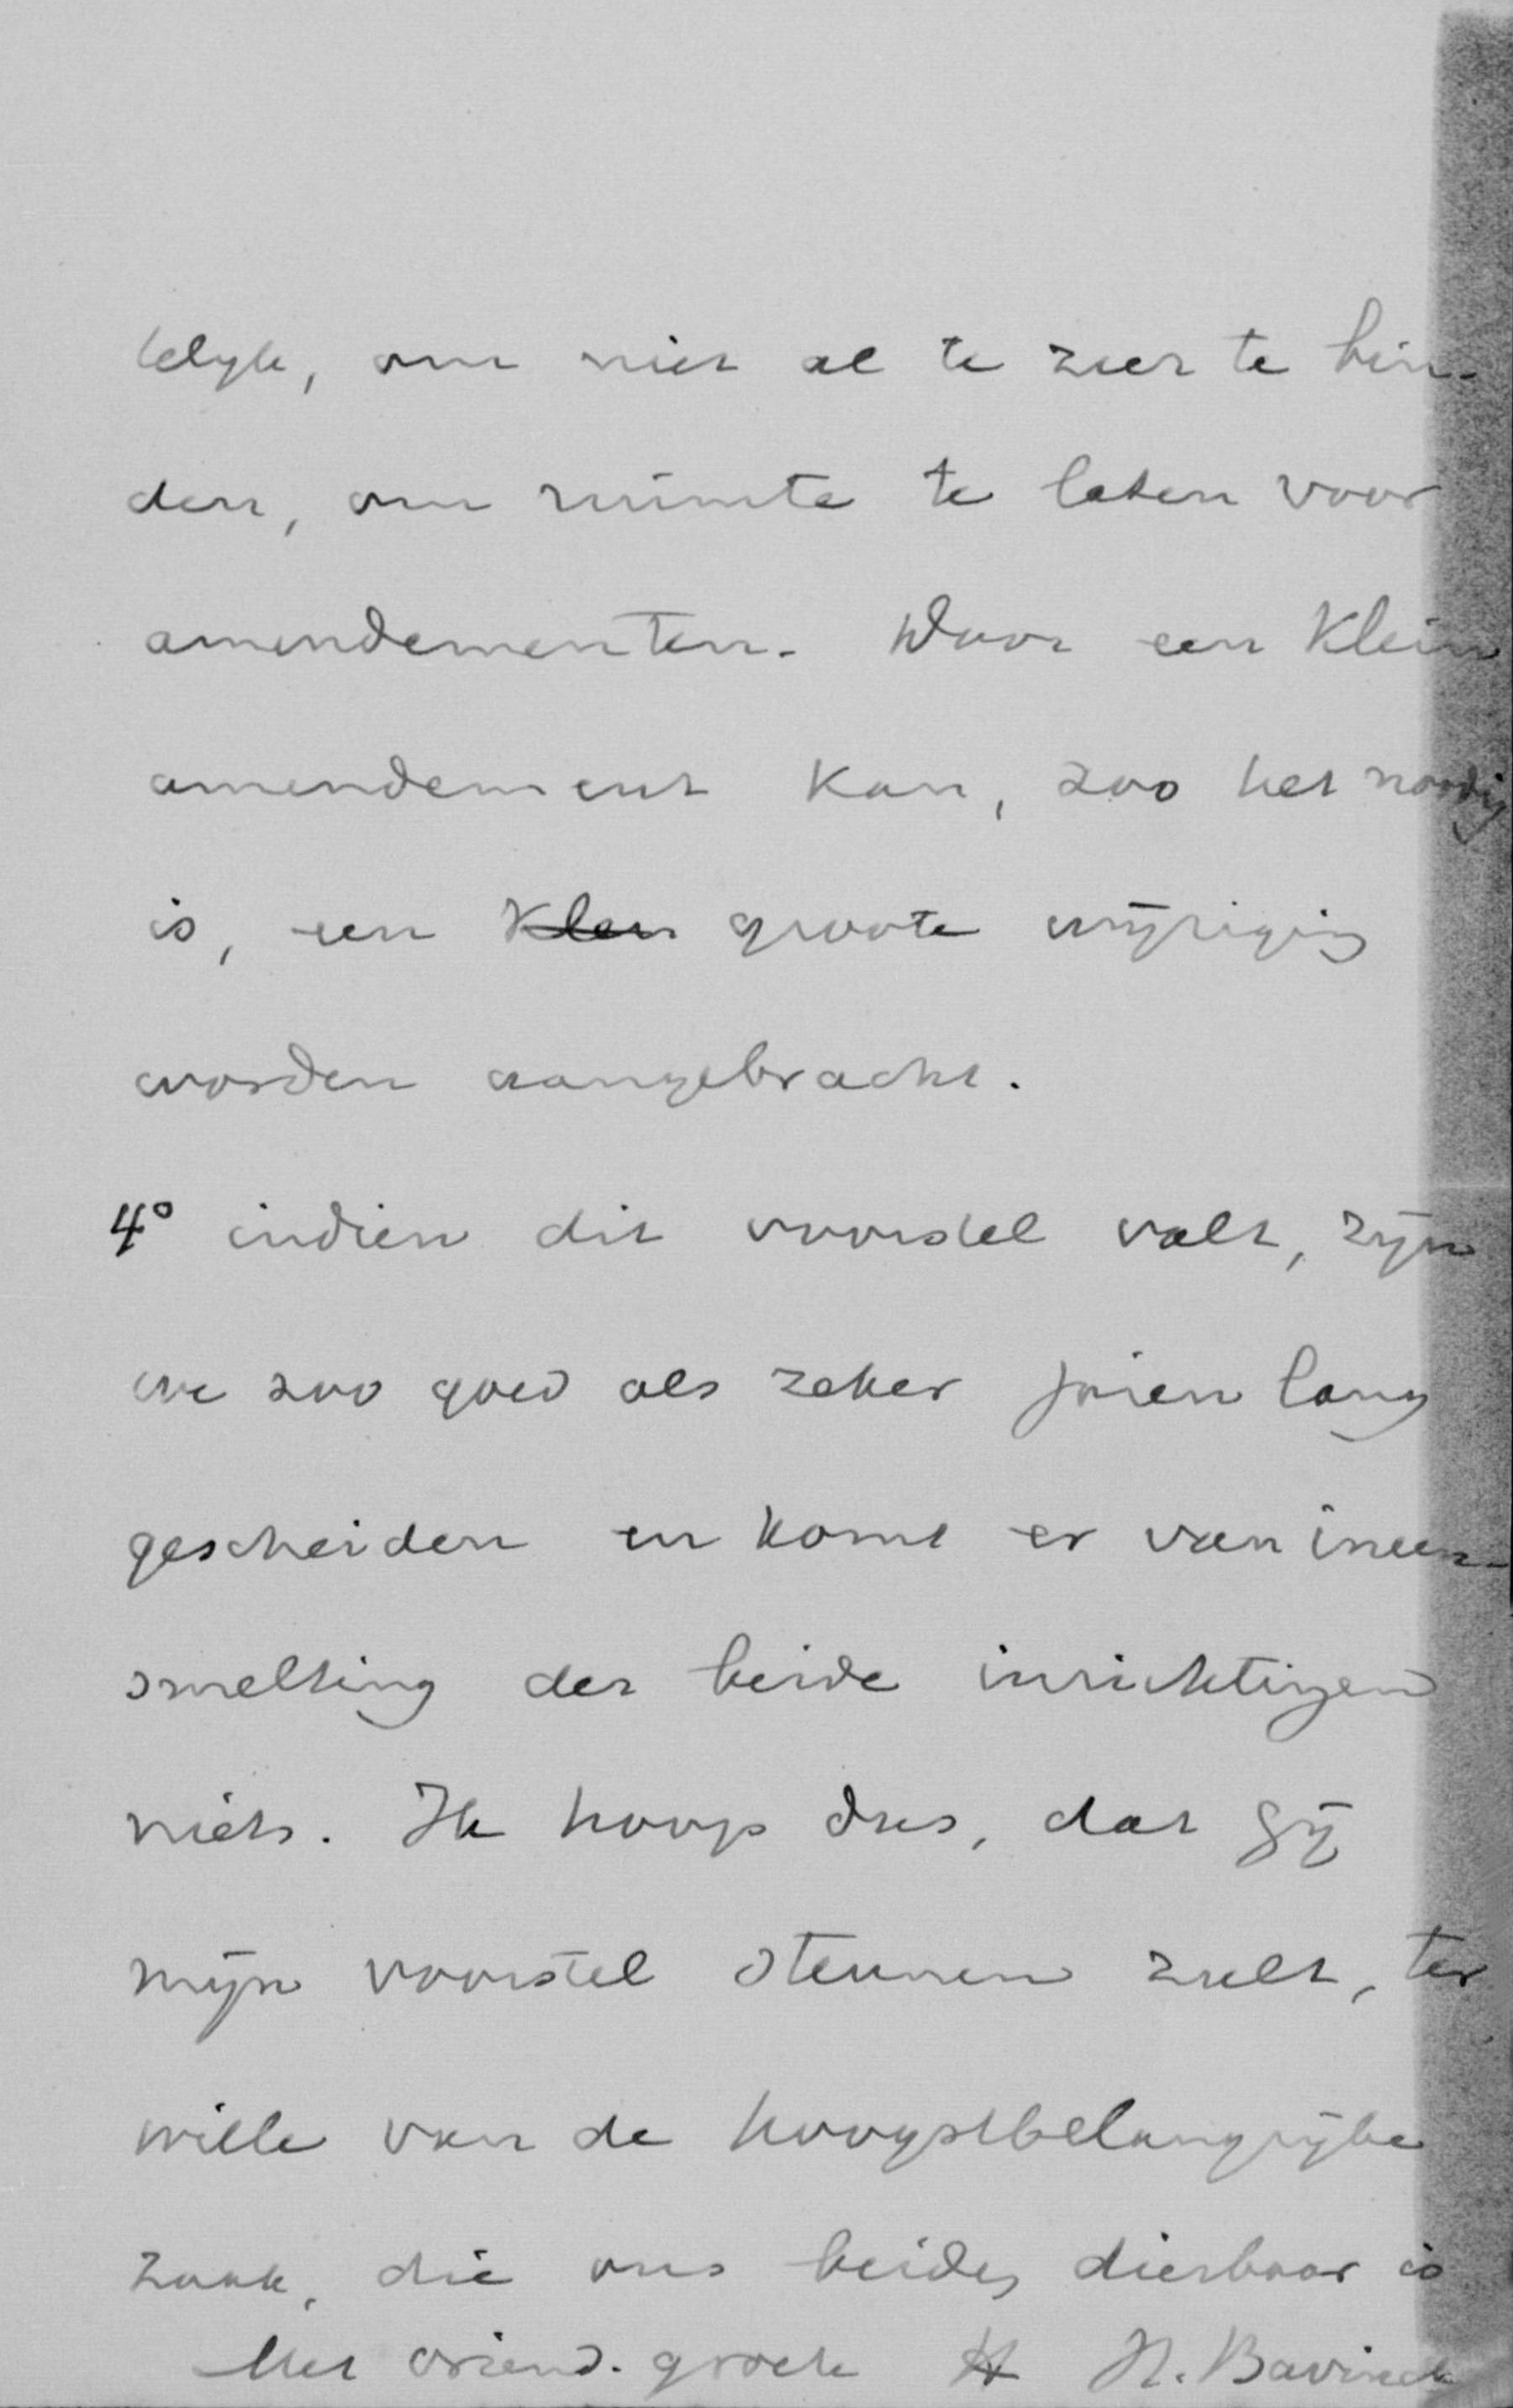 lelijk, om niet al te zeer te bin-
den, om ruimte te laten voor
amendementen. Door een klein
amendement kan, zoo het noodig
is, een klein groote wijziging
worden aangebracht.
4° indien dit voorstel valt, zijn
we zoo goed als zeker jaren lang
gescheiden en komt er van ineen-
smelting der beide inrichtingen
niets. Ik hoop dus, dat Gij
mijn voorstel steunen zult, ter
wille van de hoogstbelangrijke
zaak, die ons beiden dierbaar is
Met vriend. groete H. Bavinck